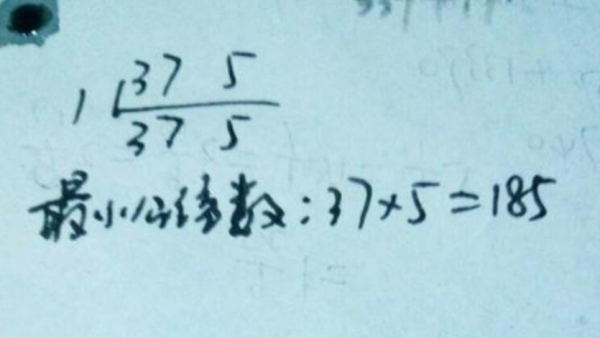 1 37 5
37 5
最小公倍数:37×5=185